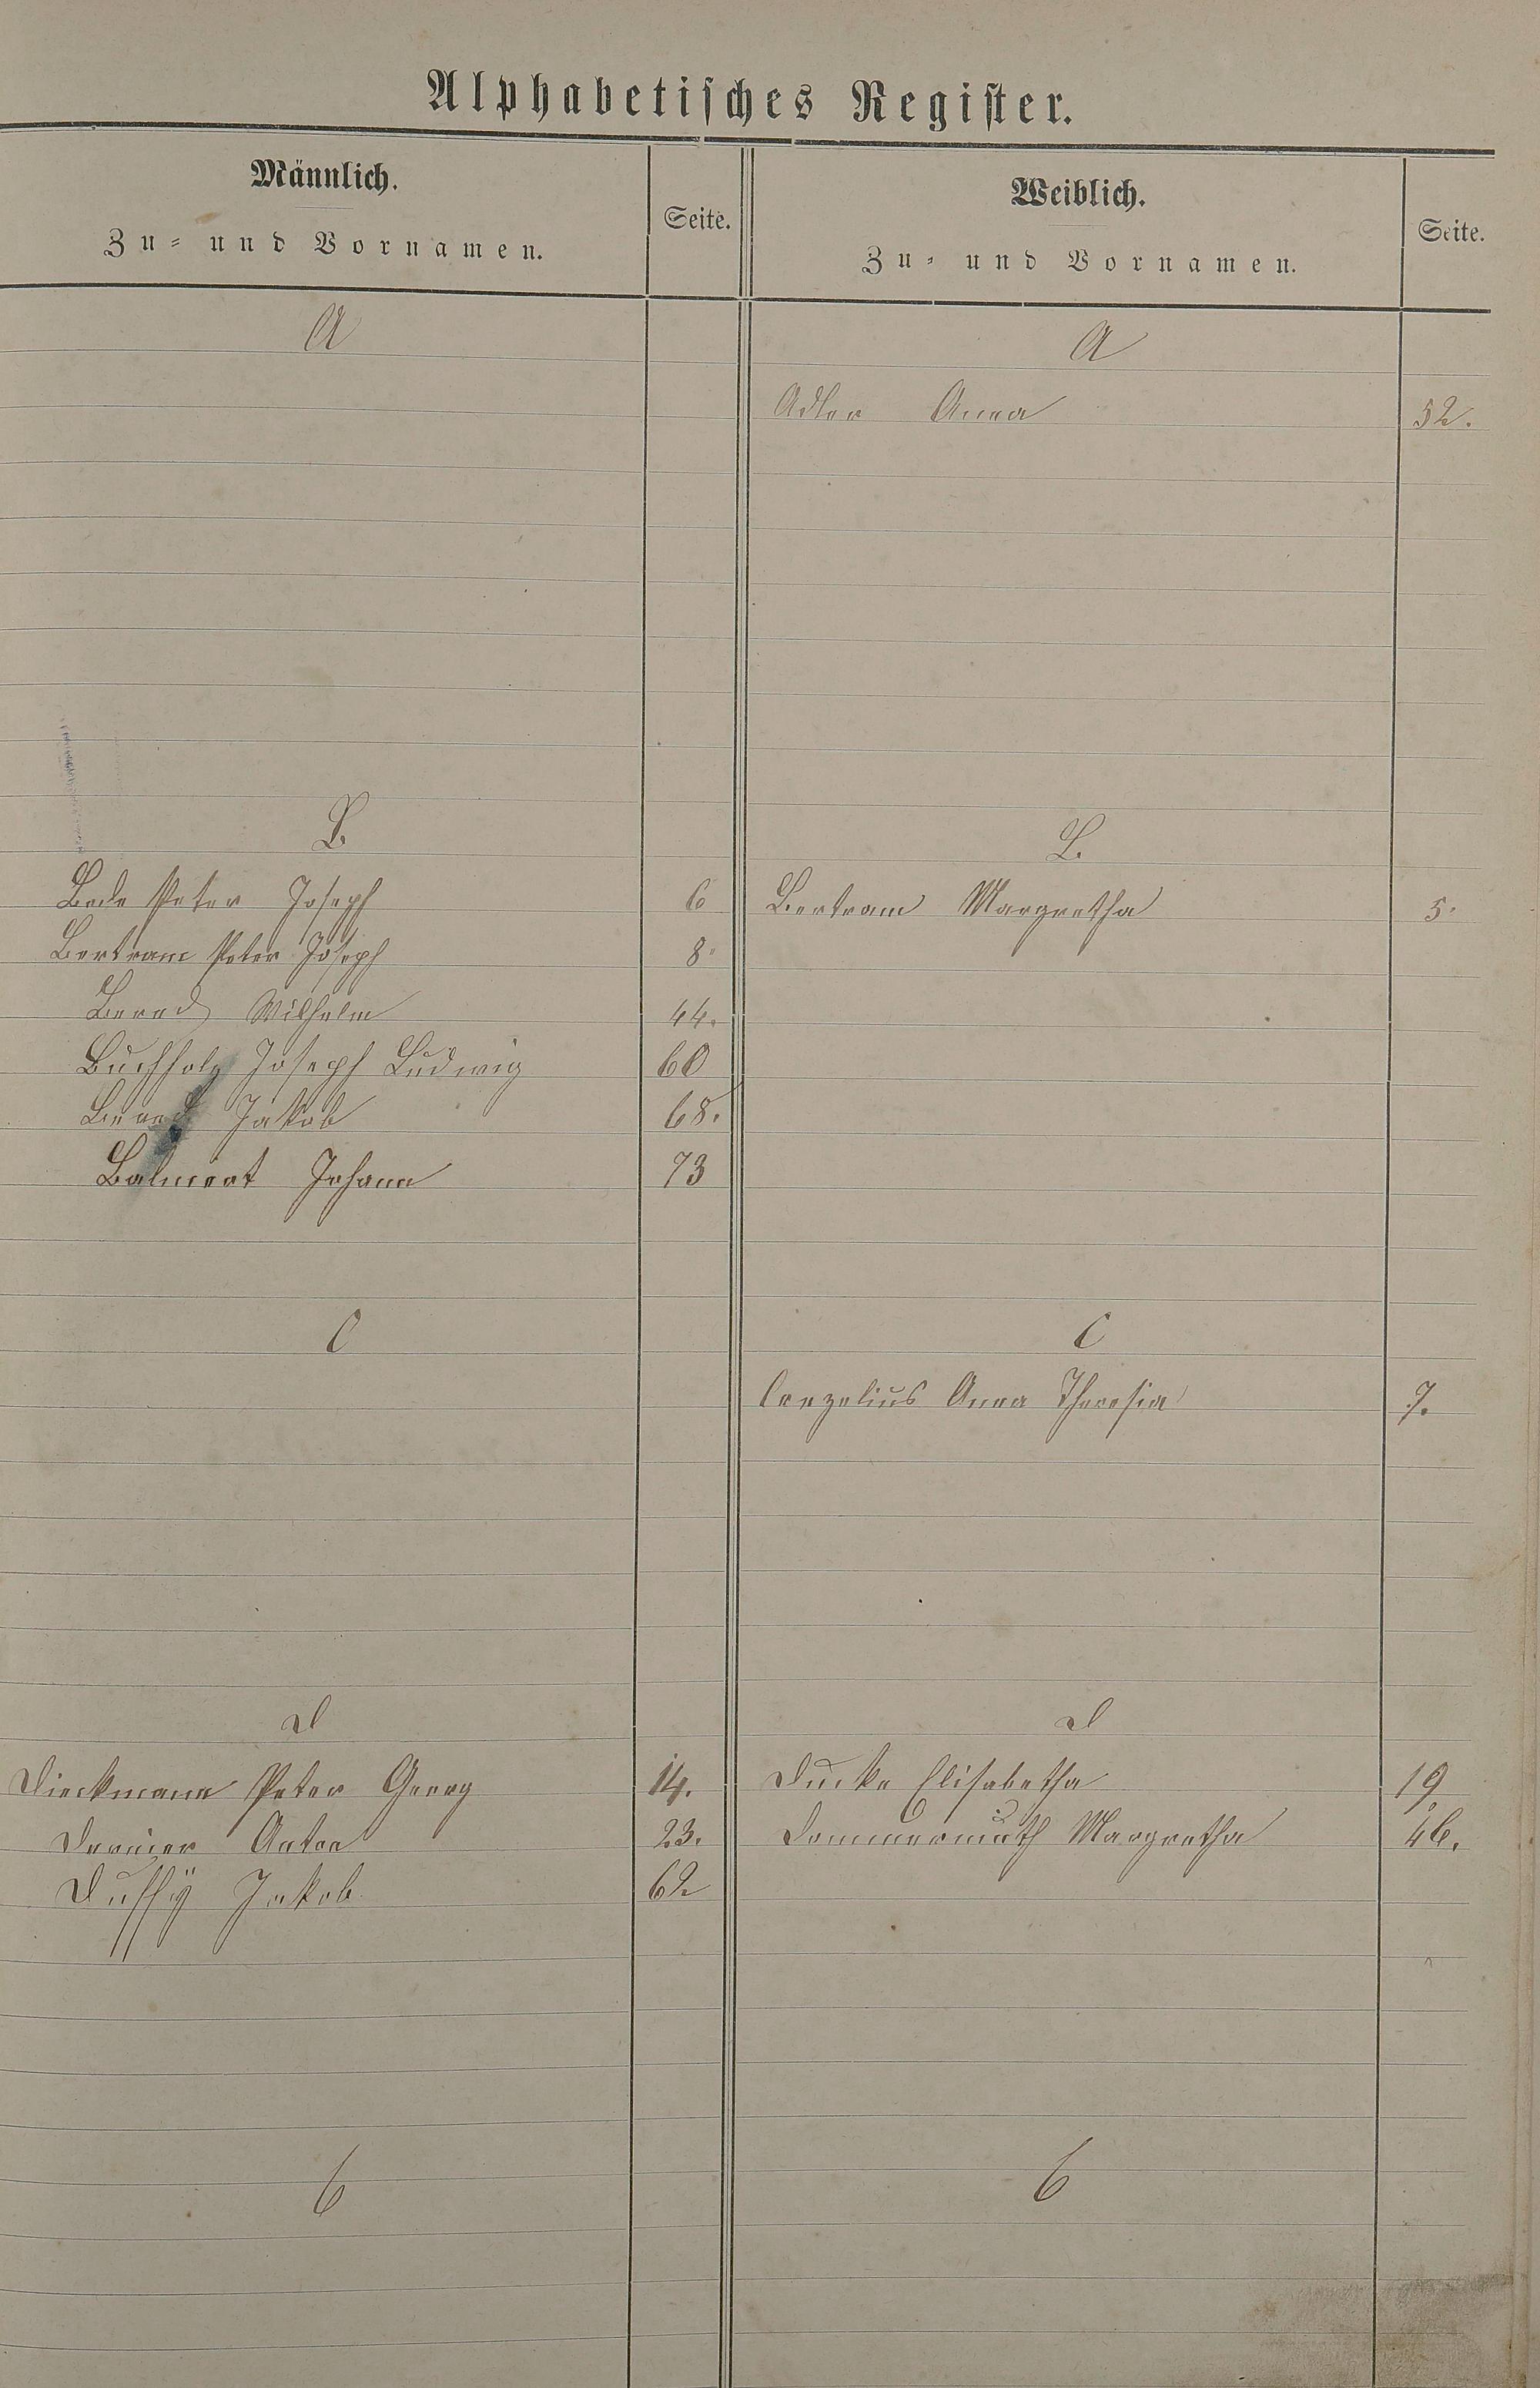 Alphabetisches Register.
Männlich. Seite. Weiblich. Seite.
Zu= und Vornamen. Zu= und Vornamen.
A A
Adler Anna 52.
B. B.
Bode Peter Joseph 6 Bertram Margretha 5.
Bertram Peter Joseph 8.
Bernd Wilhelm 44.
Buchholz Joseph Ludwig 60
Bernd Jakob 68.
Balmert Johann 73
C C
Crezelius Anna Theresia 7.
D D
Dieckmann Peter Georg 14. Ducke Elisabetha 19
Anton 23. Dommermuth Margretha 46.
Duffÿ Jakob 62
E E